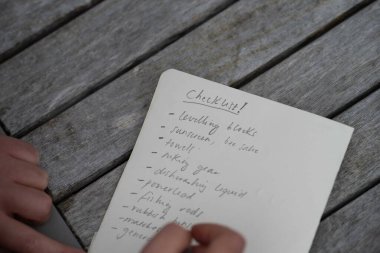 Checklist!
- levelling blocks
- sunscreen, bee
- towels
- hiking gear
- dishwashing liquid
- powerlead
- fishing rods
- rubbish